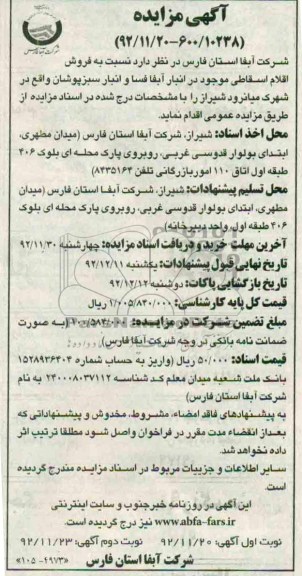 شرکت آبفا فارس
آگهی مزایده
(۹۲/۱۱/۲۰-۶۰۰/۱۰۲۳۸)
شرکت آبفا استان فارس در نظر دارد نسبت به فروش
اقلام اسقاطی موجود در انبار آبفا فسا و انبار سبزپوشان واقع در
شهرک میانرود شیراز را با مشخصات درج شده در اسناد مزایده از
طریق مزایده عمومی اقدام نماید.
محل اخذ اسناد: شیراز، شرکت آبفا استان فارس (میدان مطهری،
ابتدای بولوار قدوسی غربی، روبروی پارک محله ای بلوک ۴۰۶
طبقه اول اتاق ۱۱۰ امور بازرگانی تلفن ۸۴۳۵۱۶۴)
محل تسلیم پیشنهادات: شیراز، شرکت آبفا استان فارس (میدان
مطهری، ابتدای بولوار قدوسی غربی، روبروی پارک محله ای بلوک
۴۰۶ طبقه اول، واحد دبیرخانه)
آخرین مهلت خرید و دریافت اسناد مزایده: چهارشنبه ۹۲/۱۱/۳۰
تاریخ نهایی قبول پیشنهادات: یکشنبه ۹۲/۱۲/۱۱
تاریخ بازگشایی پاکات: دوشنبه ۹۲/۱۲/۱۲
قیمت کل پایه کارشناسی: ۲/۰۰۵/۸۴۰/۰۰۰ ریال
مبلغ تضمین شرکت در مزایده: (به صورت
ضمانت نامه بانکی در وجه شرکت آبفا فارس)
قیمت اسناد: ۵۰/۰۰۰ ریال (واریز به حساب شماره ۱۵۲۸۹۲۶۴۰۴
بانک ملت شعبه میدان معلم کد شناسه ۲۴۰۰۰۸۰۳۷۱۱۲ به نام
شرکت آبفا استان فارس)
به پیشنهادهای فاقد امضاء، مشروط، مخدوش و پیشنهاداتی که
بعد از انقضاء مدت مقرر در فراخوان واصل شود مطلقا ترتیب اثر
داده نخواهد شد.
سایر اطلاعات و جزییات مربوط در اسناد مزایده مندرج گردیده
است.
این آگهی در روزنامه خبرجنوب و سایت اینترنتی
www.abfa-fars.ir نیز درج گردیده است.
نوبت اول آگهی: ۹۲/۱۱/۲۰ نوبت دوم آگهی: ۹۲/۱۱/۲۳
شرکت آبفا استان فارس «۱۰۵-۴۹۷۳»